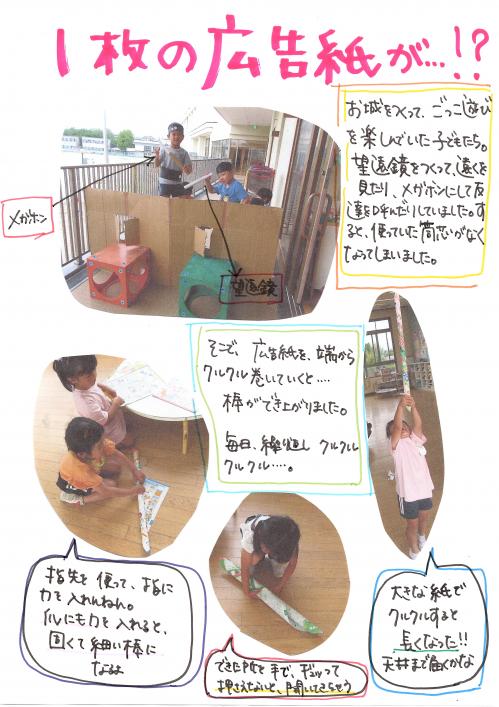 1枚の広告紙が…!?
お城をつくって、ごっこ遊び
を楽しんでいた子どもたち。
望遠鏡をつくって、遠くを
見たり、メガホンにして友
達を呼んだりしていました。す
ると、使っていた筒芯がなく
なってしまいました。
メガホン
望遠鏡
そこで、広告紙を、端から
クルクル巻いていくと・・・・
棒ができ上がりました。
毎日、繰り返し クルクル
クルクル・・・・。
指先を使って、指に
力を入れんねん。
爪にも力を入れると、
固くて細い棒に
なるよ
できた所を手で、ギュッって
押さえないと、開いてきちゃう
大きな紙で
クルクルすると
長くなった!!
天井まで届くかな